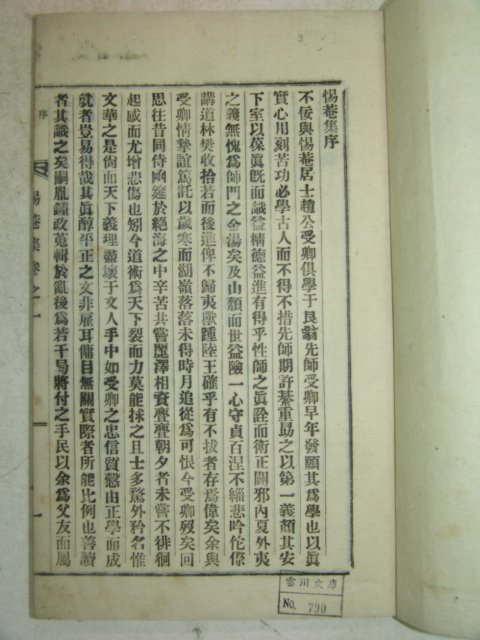 惕菴集序
不佞與惕菴居士趙公受卿俱學于艮翁先師受卿早年發願其爲學也以眞
實心用刻苦功必學古人而不得不措先師期許綦重勗之以第一義顏其安
下室以葆眞旣而識益精德益進有得乎性師之眞詮而衛正闢邪內夏外夷
之義無愧爲師門之金湯矣及山頹而世益險一心守貞百涅不緇悲吟佗傺
講道林樊收拾若而後進俾不歸夷獸踵陸王確乎有不拔者存焉偉矣余與
受卿情摯誼篤託以歲寒而湖嶺落落未得時月追從爲可恨今受卿歿矣回
思往昔同侍函筵於絶海之中辛苦共嘗麗澤相資亹亹朝夕者未嘗不徘徊
起感而尤增悲傷也矧今道術爲天下裂而力莫能捄之且士多騖外矜名惟
文華之是尙而天下義理盡壞于文人手中如受卿之忠信質慤由正學而成
就者豈易得哉其眞醇平正之文非雁耳傭目無關實際者所能比例也善讀
者其識之矣嗣胤鏞政蒐輯於亂後爲若干局將付之手民以余爲父友而屬
序
惕菴集卷之一
一
雲川文庫
No. 790